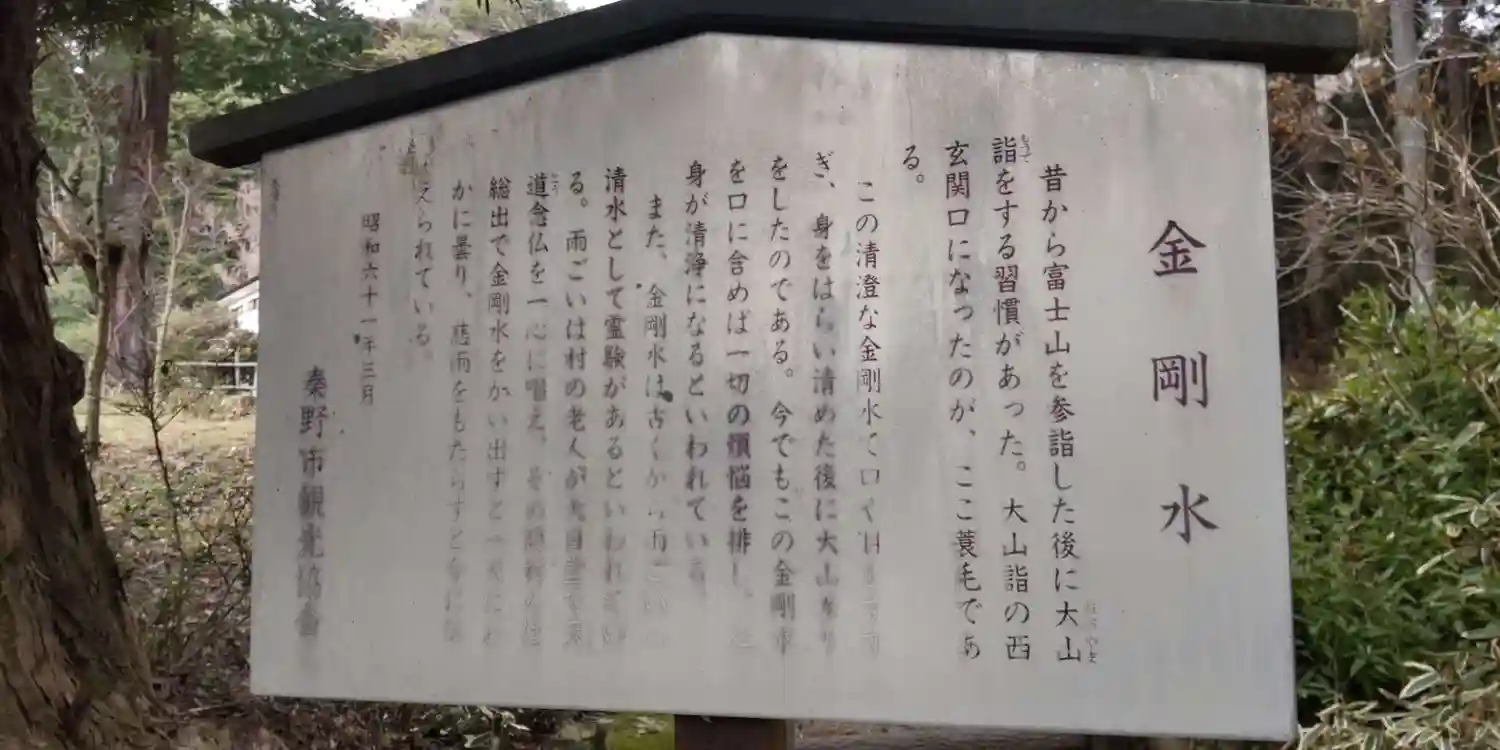 金剛水
昔から富士山を参詣した後に大山
詣をする習慣があった。大山詣の西
玄関口になったのが、ここ蓑毛であ
る。
この清澄な金剛水で口
ぎ、身をはらい清めた後に大山
をしたのである。今でもこの金剛水
を口に含めば一切の煩悩を排し、
身が清浄になるといわれている。
また、金剛水は古くか
清水として霊験があるといわれてい
る。雨ごいは村の老人が
道念仏を一心に唱え、その
総出で金剛水をかい出すと
かに曇り、慈雨をもたらすと
えられている。
昭和六十一年三月
秦野市観光協会